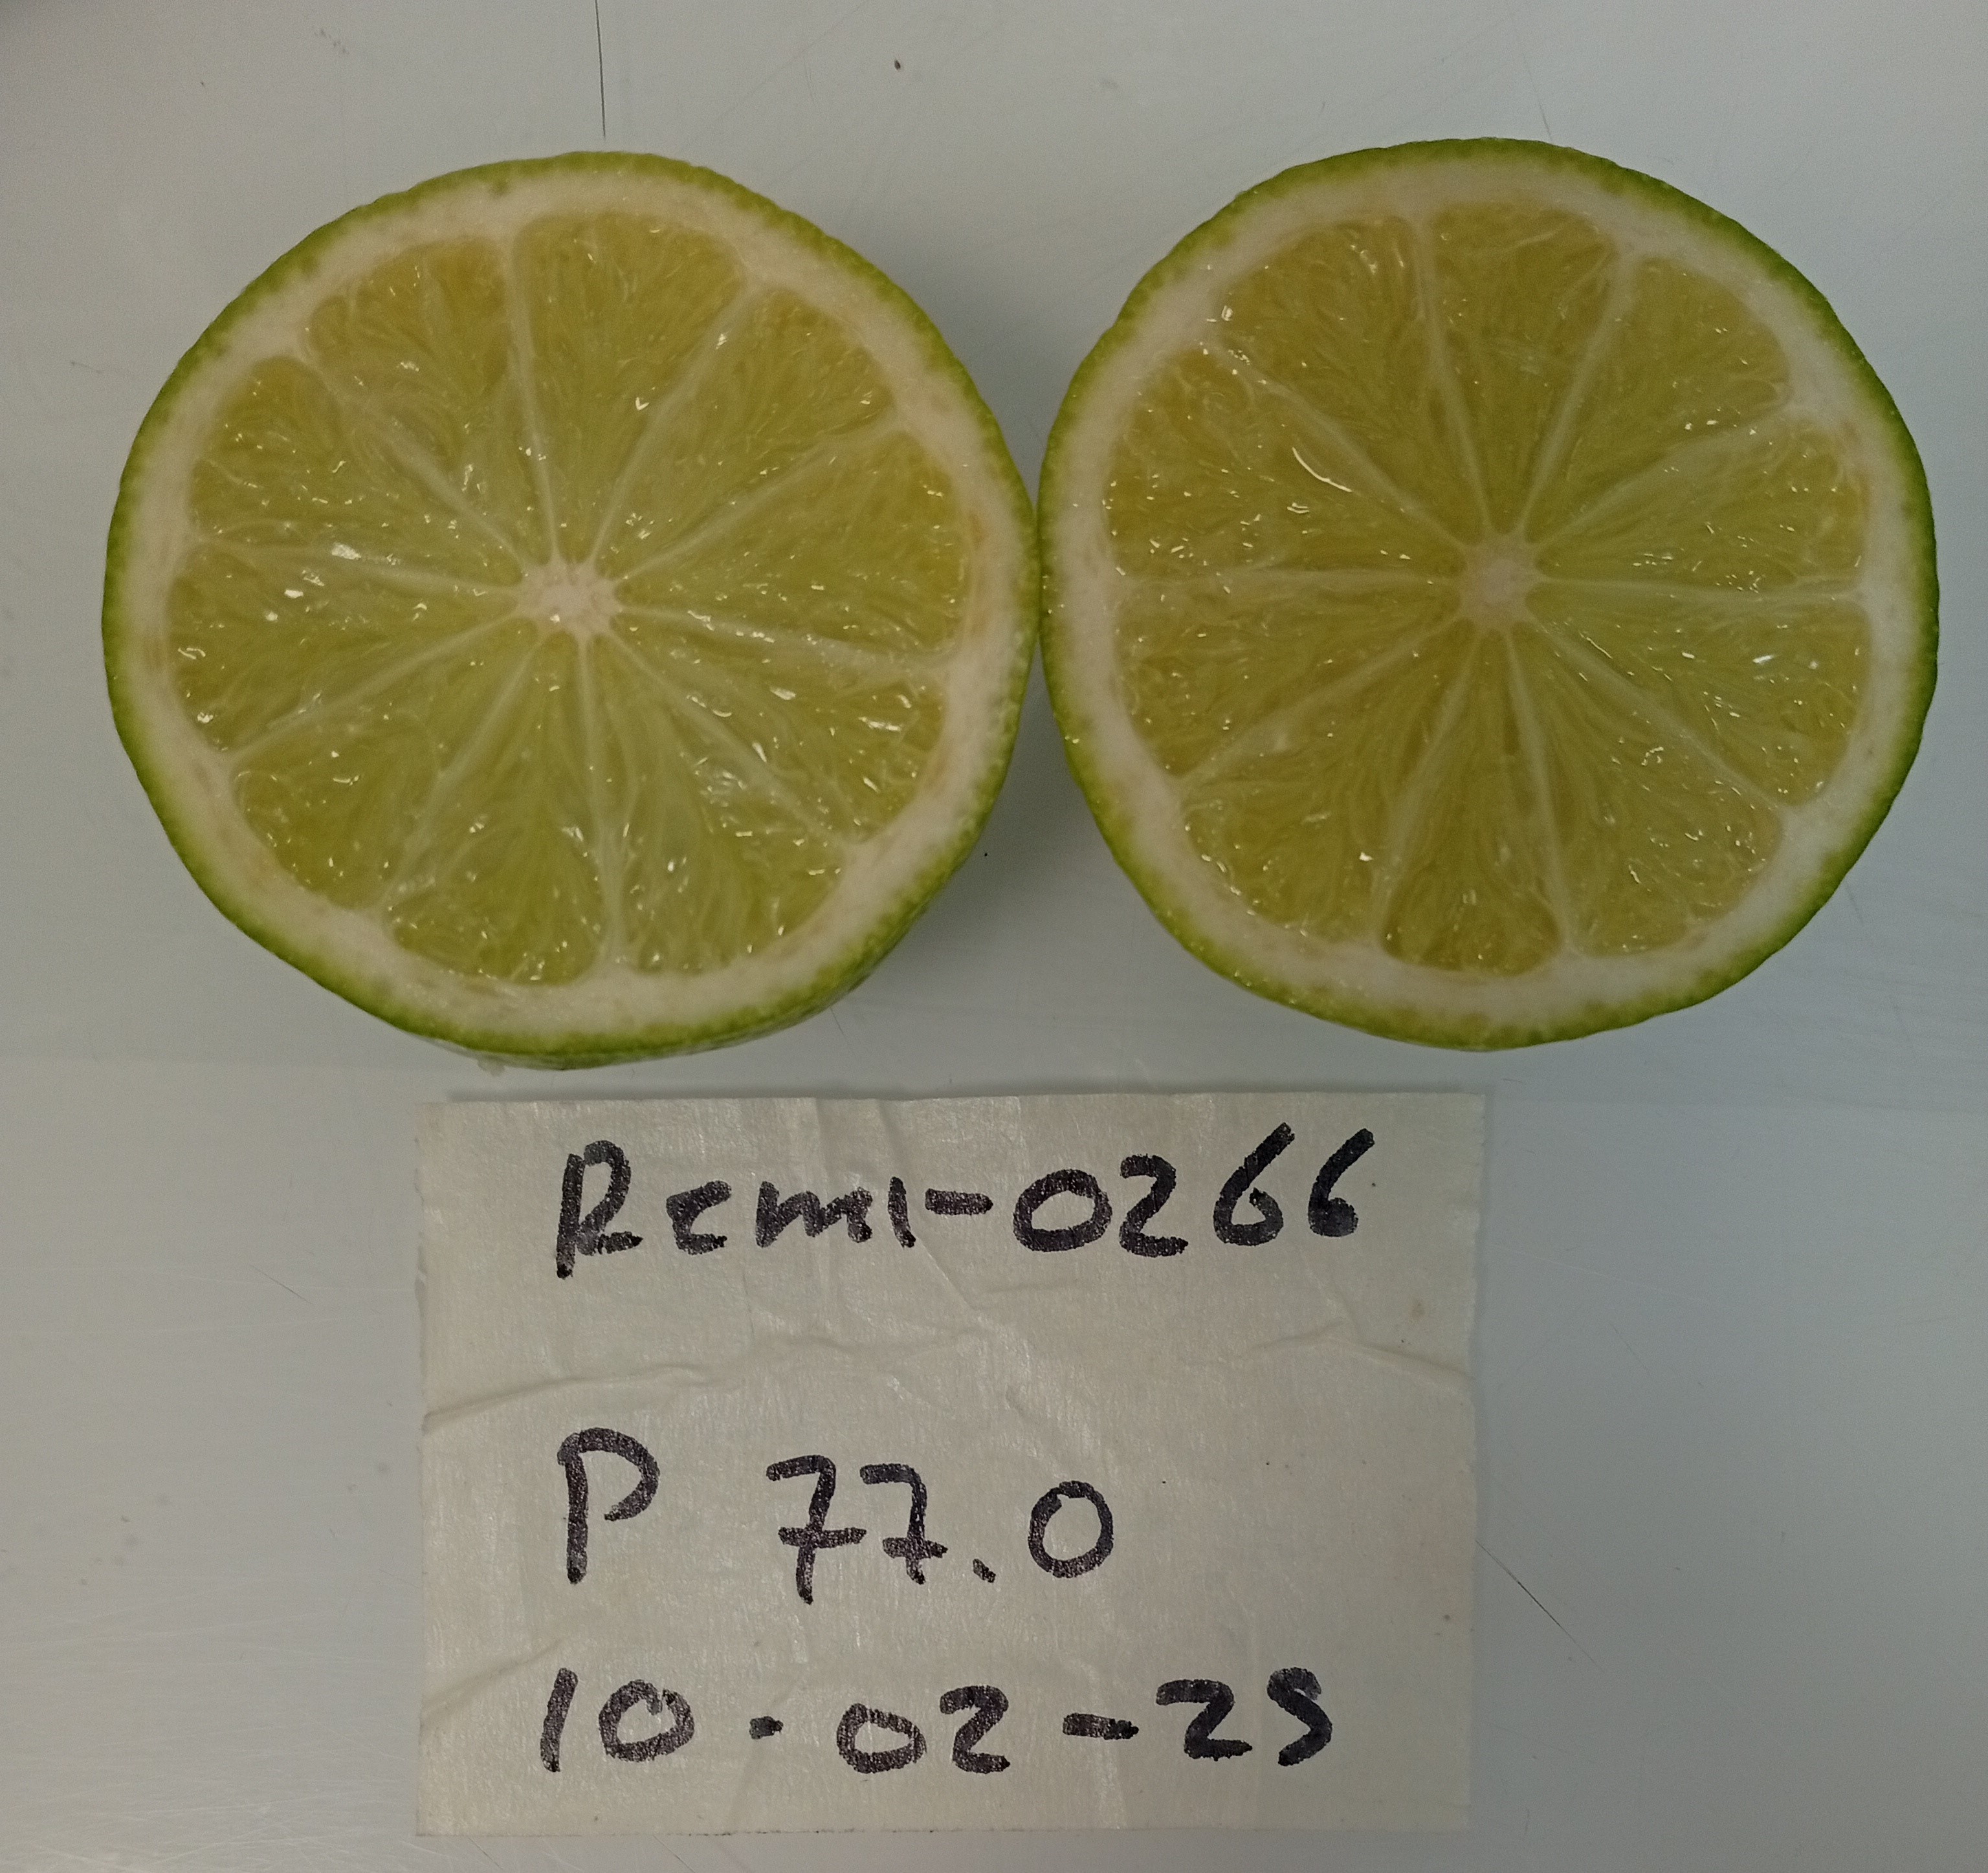 Remi-0266
P 77.0
10-02-25